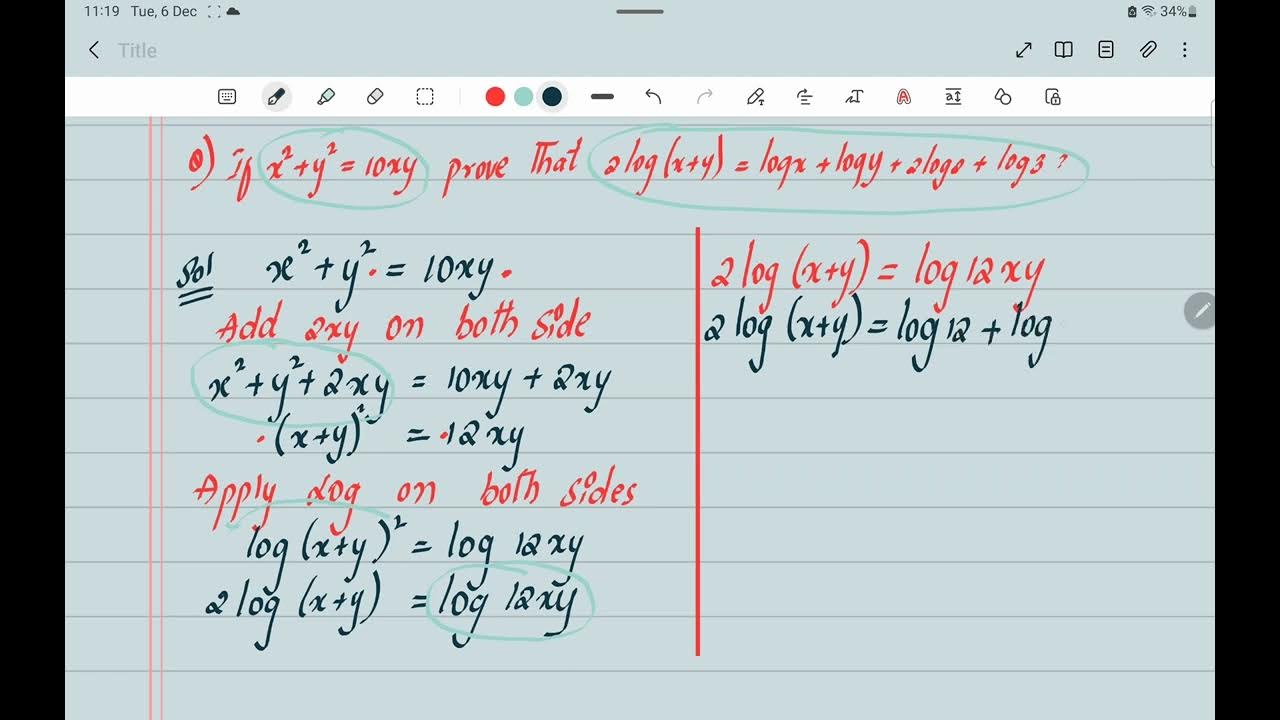 11:19 Tue, 6 Dec 34%
Title
Q) If x² + y² = 10xy prove That 2log(x+y) = logx + logy + 2log2 + log3 ?
Sol x² + y² = 10xy
Add 2xy on both side
x² + y² + 2xy = 10xy + 2xy
(x+y)² = 12xy
Apply Log on both sides
log(x+y)² = log 12xy
2log(x+y) = log 12xy
2log(x+y) = log12xy
2log(x+y) = log12 + log